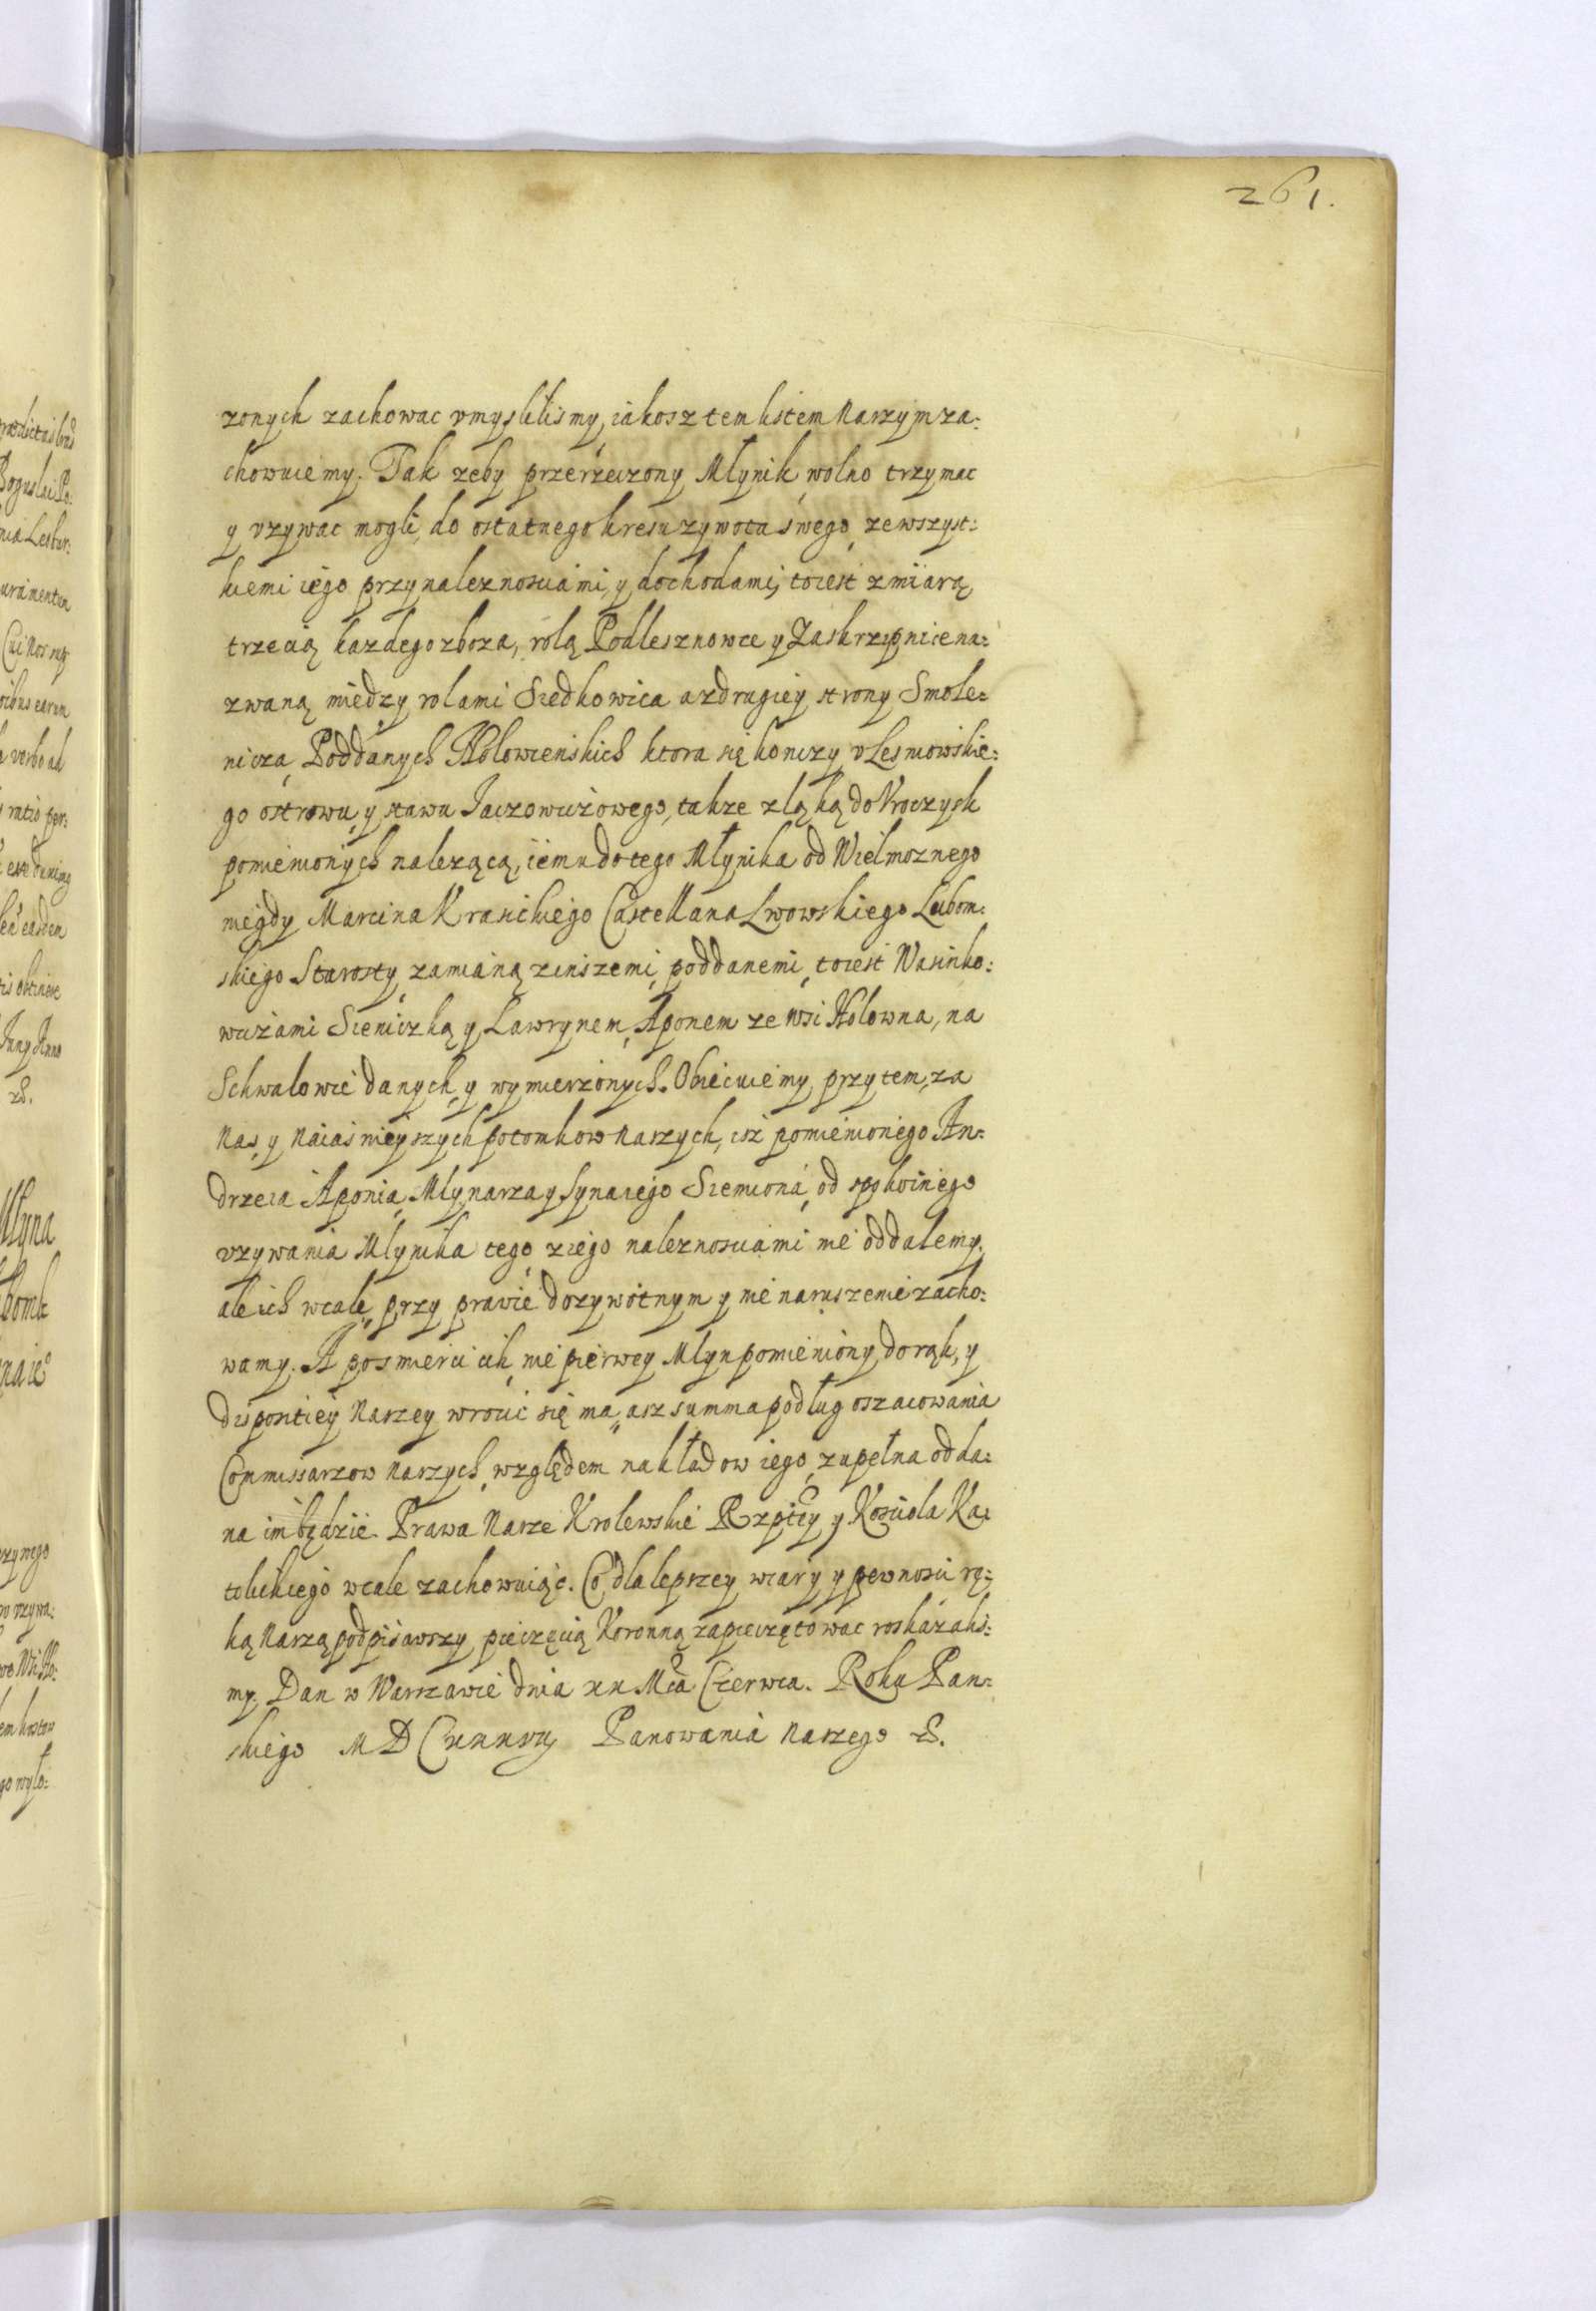 261.
zonych zachowac vmyslilismy, iakosz tem listem Naszym za:
chowuiemy. Tak zeby przerzeczony Młynik, wolno trzymac
y vzywac mogli, do ostatnego kresu zywota swego, zewszyst:
kiemi iego przynaleznosciami, y dochodami, toiest zmiarą
trzecią kazdego zboza, rolą Podlesznowce y Zaskrzypnice na:
zwaną między rolami Siedkowica a z drugiey strony Smole:
nicza, Poddanych Holowienskich ktora się konczy v Lesniowskie:
go ostrowu, y stawu Jaczowiczowego, takze z łąką do Vroczysk
pomienionych nalezącą, iemu do tego Młynika od Wielmoznego
niegdy Marcina Krasickiego Castellana Lwowskiego Lubom:
skiego Starosty, zamianą zinszemi, poddanemi, toiest Wasinko:
wiczami Sieniczką y Lawrynem, Aponem ze wsi Holowna, na
Schwalowie danych, y wymierzonych. Obiecuiemy, przytem, za
Nas, y Naiasnieyszych potomkow Naszych, isz pomienionego An:
drzeia Aponia, Mlynarza y Syna iego Siemiona, od spokoinego
vzywania Mlynika tego, z iego naleznosciami nie oddalemy,
ale ich wcale, przy prawie dozywotnym y nie naruszenie zacho:
wamy. A po smierci ich, nie pierwey Mlyn pomieniony do rąk, y
dispositiey Naszey wrocic się ma, asz summa podług oszacowania
Commissarzow Naszych, względem nakładow iego, zupełna odda:
na im będzie. Prawa Nasze Krolewskie Rzptey y Kosciola Ka:
tolickiego wcale zachowuiąc. Co dla lepszey wiary y pewnosci rę:
ką Naszą podpisawszy, pieczęcią Koronną zapieczętowac roskazalis:
my. Dan w Warszawie dnia xx Mca Czerwca. Roku Pan:
skiego MDCxxxvij Panowania Naszego &.